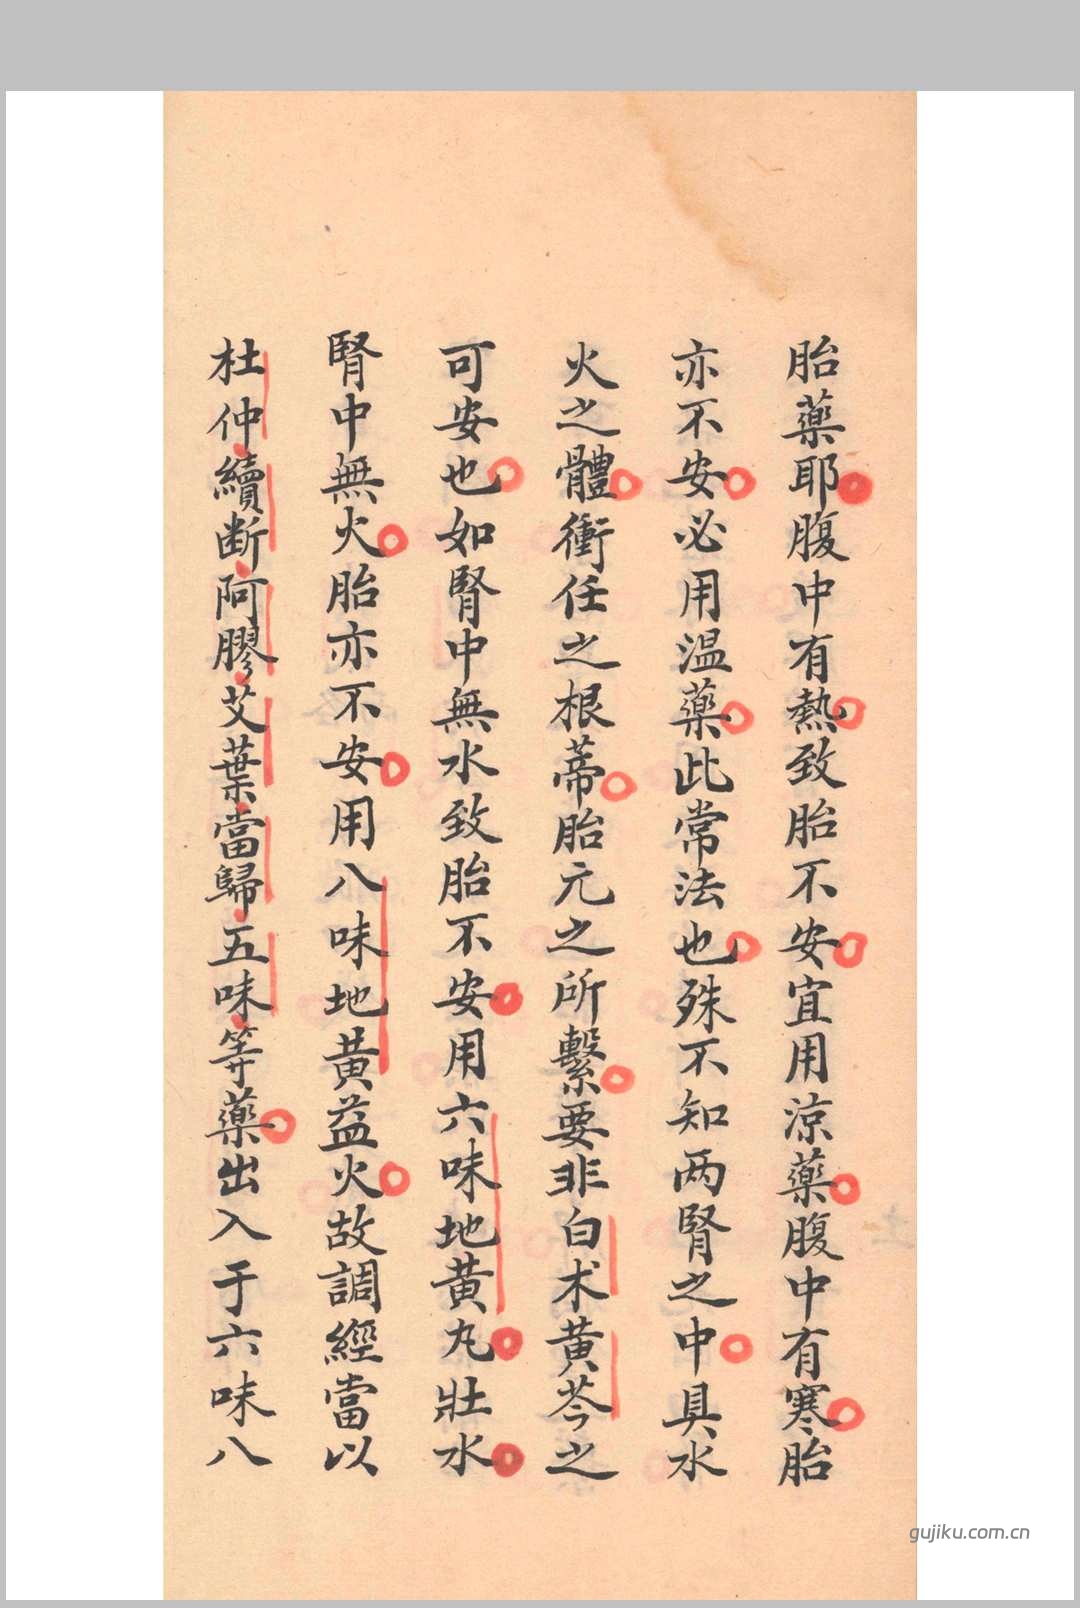 胎藥耶腹中有熱致胎不安宜用涼藥腹中有寒胎
亦不安必用温藥此常法也殊不知两腎之中具水
火之體衝任之根蒂胎元之所繫要非白术黄芩之
可安也如腎中無水致胎不安用六味地黄丸壯水
腎中無火胎亦不安用八味地黄益火故調經當以
杜仲續断阿膠艾葉當歸五味等藥出入于六味八
gujiku.com.cn